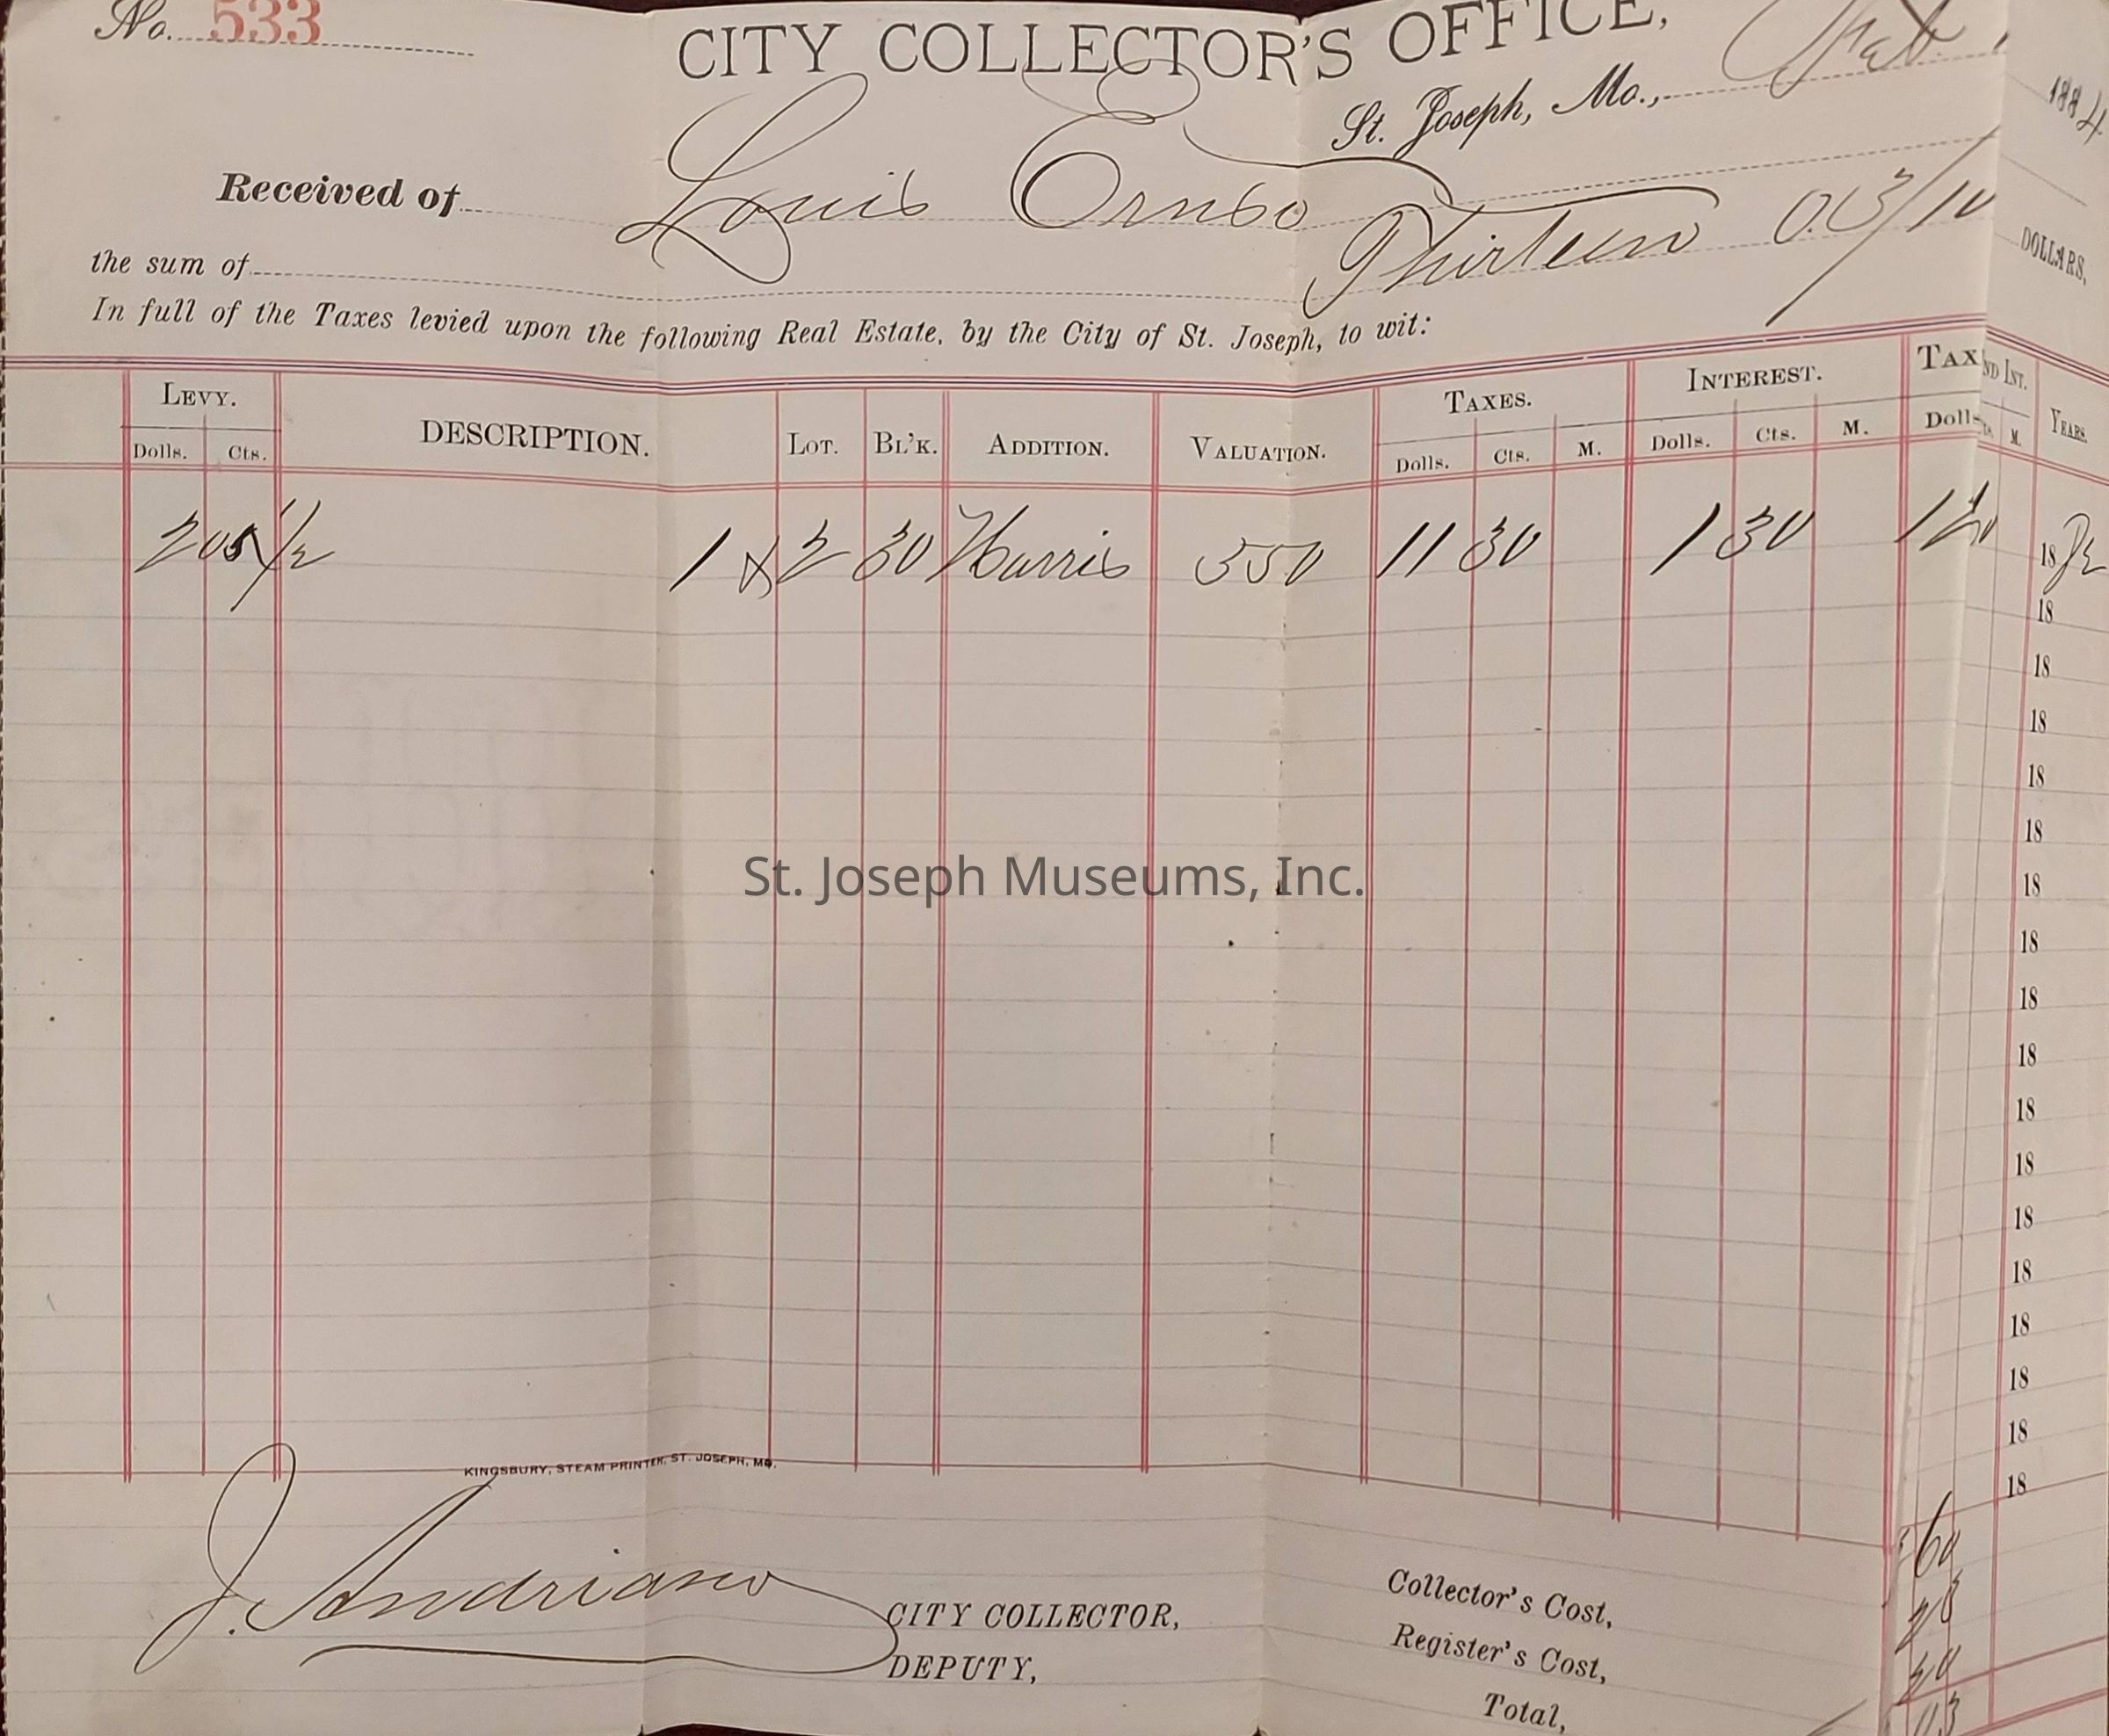 No. 533
CITY COLLECTOR'S OFFICE,
St. Joseph, Mo., 1884
Received of Louis
the sum of Thirteen 03/10 DOLLARS.
In full of the Taxes levied upon the following Real Estate, by the City of St. Joseph, to wit:
LEVY. DESCRIPTION. LOT. BL'K. ADDITION. VALUATION. TAXES. INTEREST. TAX ND INT. YEARS.
Dolls. Cts. Dolls. Cts. M. Dolls. Cts. M. Dolls M.
2 05 1/2 1 & 2 30 Harris 550 11 30 1 30 12 1882
18
18
18
18
18
18
18
18
18
18
18
18
18
18
18
18
18
St. Joseph Museums, Inc.
KINGSBURY, STEAM PRINTER, ST. JOSEPH, MO.
J. Andriano CITY COLLECTOR,
DEPUTY,
60
Collector's Cost,
Register's Cost, 20
Total, 03